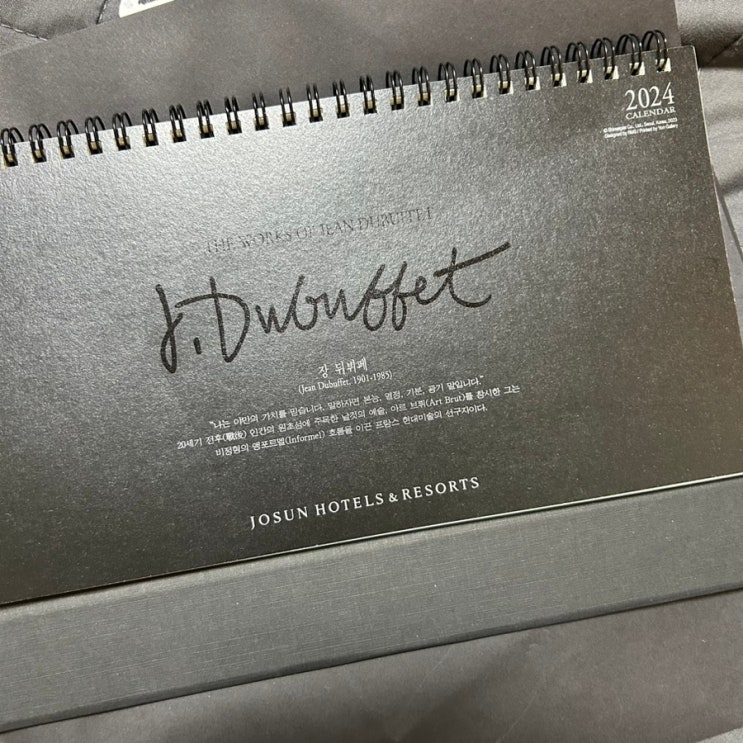 2024
CALENDAR
THE WORKS OF JEAN DUBUFFET
J. Dubuffet
장 뒤뷔페
(Jean Dubuffet, 1901-1985)
"나는 야만의 가치를 믿습니다. 말하자면 본능, 열정, 기분, 광기 말입니다."
20세기 전후(戰後) 인간의 원초성에 주목한 날것의 예술, 아르 브뤼(Art Brut)를 창시한 그는
비정형의 앵포르멜(Informel) 흐름을 이끈 프랑스 현대미술의 선구자이다.
JOSUN HOTELS & RESORTS